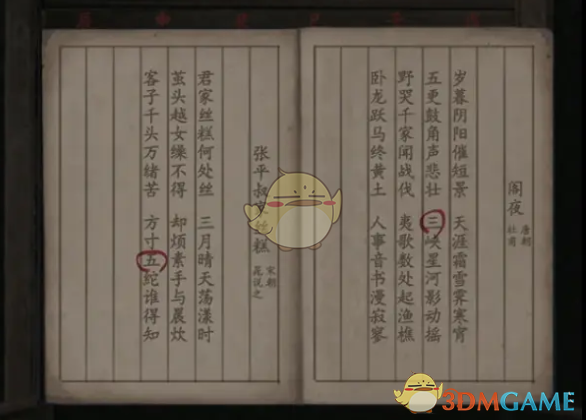 阁夜
唐朝
杜甫
岁暮阴阳催短景 天涯霜雪霁寒宵
五更鼓角声悲壮 三峡星河影动摇
野哭千家闻战伐 夷歌数处起渔樵
卧龙跃马终黄土 人事音书漫寂寥
张平叔 丝糕
宋朝
晁说之
君家丝糕何处丝 三月晴天荡漾时
茧头越女缲不得 却烦素手与晨炊
客子千头万绪苦 方寸五蛇谁得知
3DMGAME